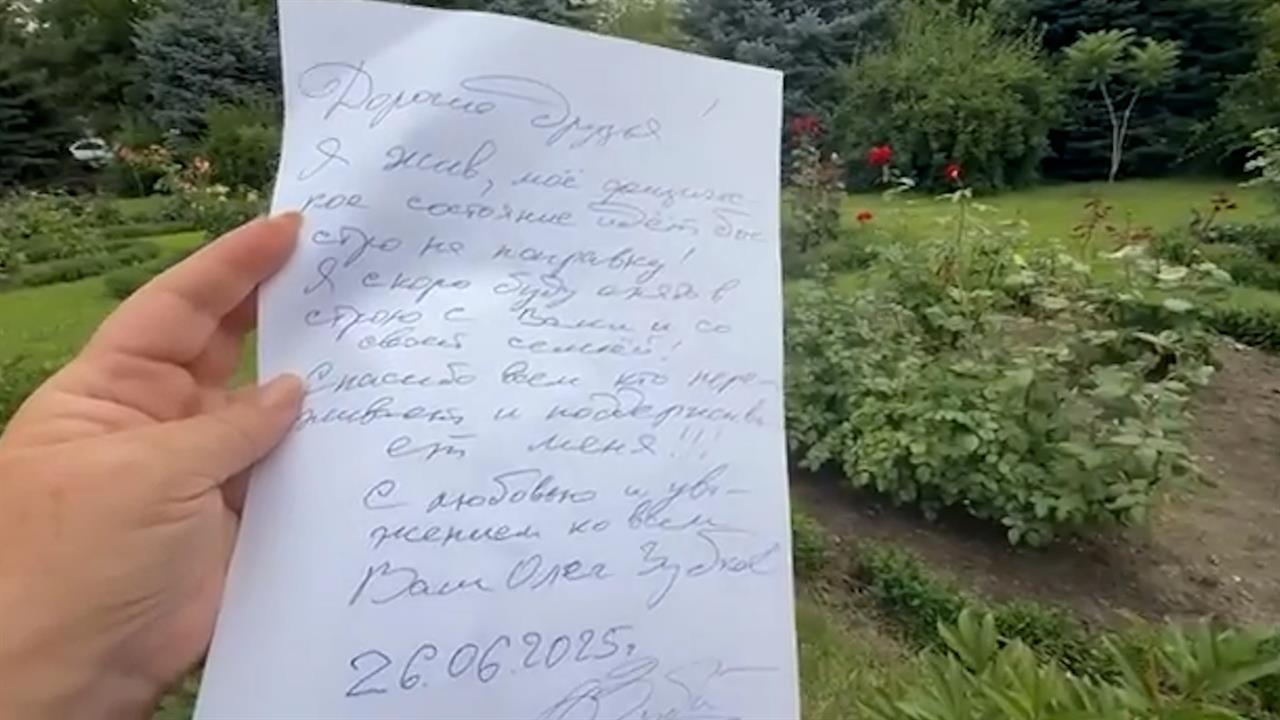 Дорогие друзья!
Я жив, моё физичес-
кое состояние идёт бы-
стро на поправку!
Я скоро буду опять в
строю с Вами и со
своей семьёй!
Спасибо всем кто пере-
живает и поддержива-
ет меня!!!
С любовью и ува-
жением ко всем
Ваш Олег Зубков
26.06.2025г.